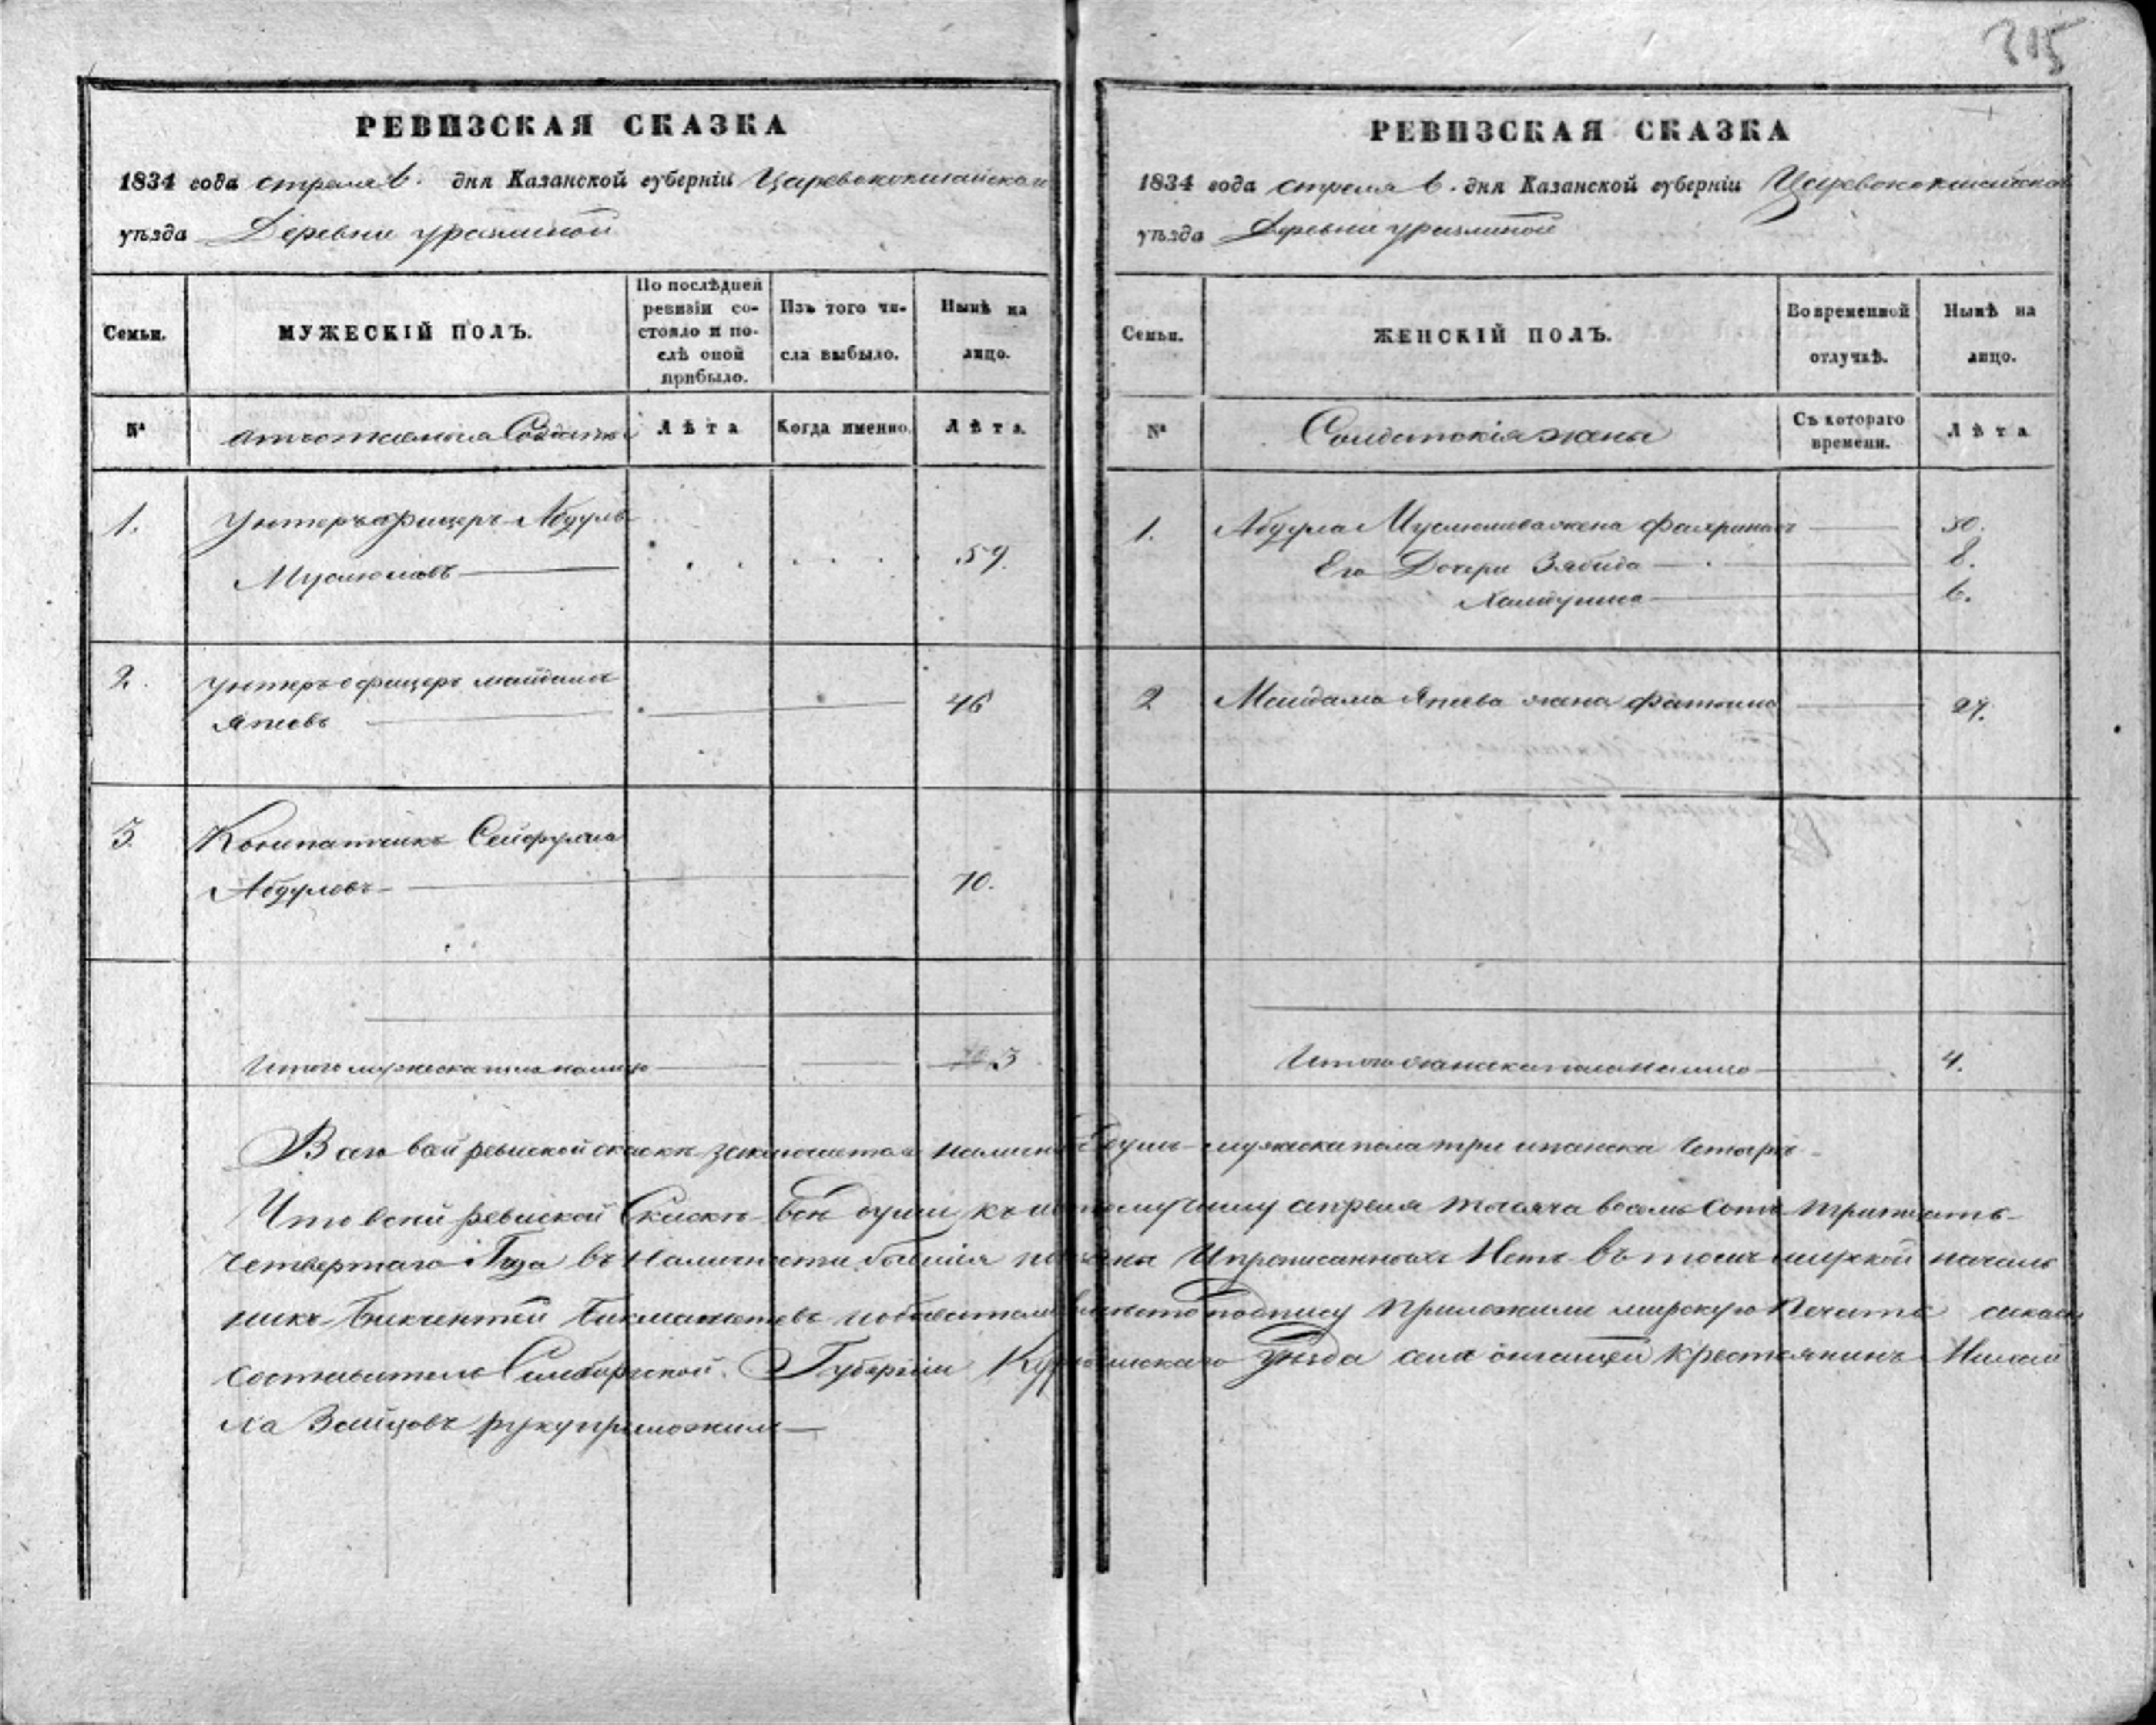 315
РЕВИЗСКАЯ СКАЗКА
1834 года апреля 6. дня Казанской губернiи Царевококшайскаго
уѣзда Деревни уразлиной
Семьи.
МУЖЕСКIЙ ПОЛЪ.
По послѣдней ревизiи состояло и послѣ оной прибыло.
Изъ того числа выбыло.
Нынѣ на лицо.
№
Солдаты
Лѣта
Когда именно.
Лѣта.
1. Унтеръофицеръ Абдулъ
Муслюмовъ 59.
2. Унтеръ офицеръ майдамъ
Япеевъ 46
3. Сейфулла
Абдуловъ 70.
Итого мужеска пола налицо 3
РЕВИЗСКАЯ СКАЗКА
1834 года апреля 6. дня Казанской губернiи Царевококшайскаго
уѣзда Деревни уразлиной
Семьи.
ЖЕНСКIЙ ПОЛЪ.
Во временной отлучкѣ.
Нынѣ на лицо.
№
Солдатскiя жены
Съ котораго времени.
Лѣта
1. Абдула Муслюмова жена 50.
Его Дочери Зябида 8.
6.
2 Майдама Япеева жена 27.
Итого женска пола налицо 4.
ревиской скаске заключается налицо душъ мужеска пола три и женска четыре
Что в сей ревиской Скаске все души к апреля тысяча восемь сотъ тритцать
четвертаго Года въ наличности бывшiя показаны И прописанныхъ Нетъ въ томъ мирской началь
никъ Бикментей Бикмаметевъ вместо подпису приложили мирскую печать
составитель Симбирской Губернiи Курмышскаго уѣзда села крестьянинъ Михай
ла Зайцовъ руку приложилъ